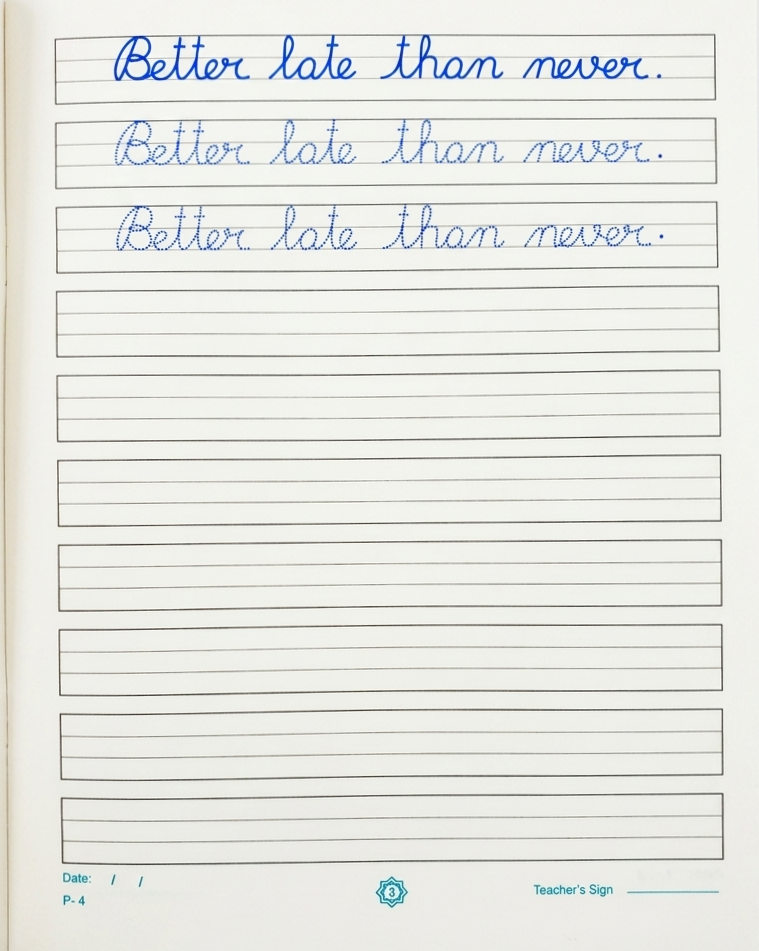 Better late than never.
Better late than never.
Better late than never.
Date: / /
P- 4
3
Teacher's Sign